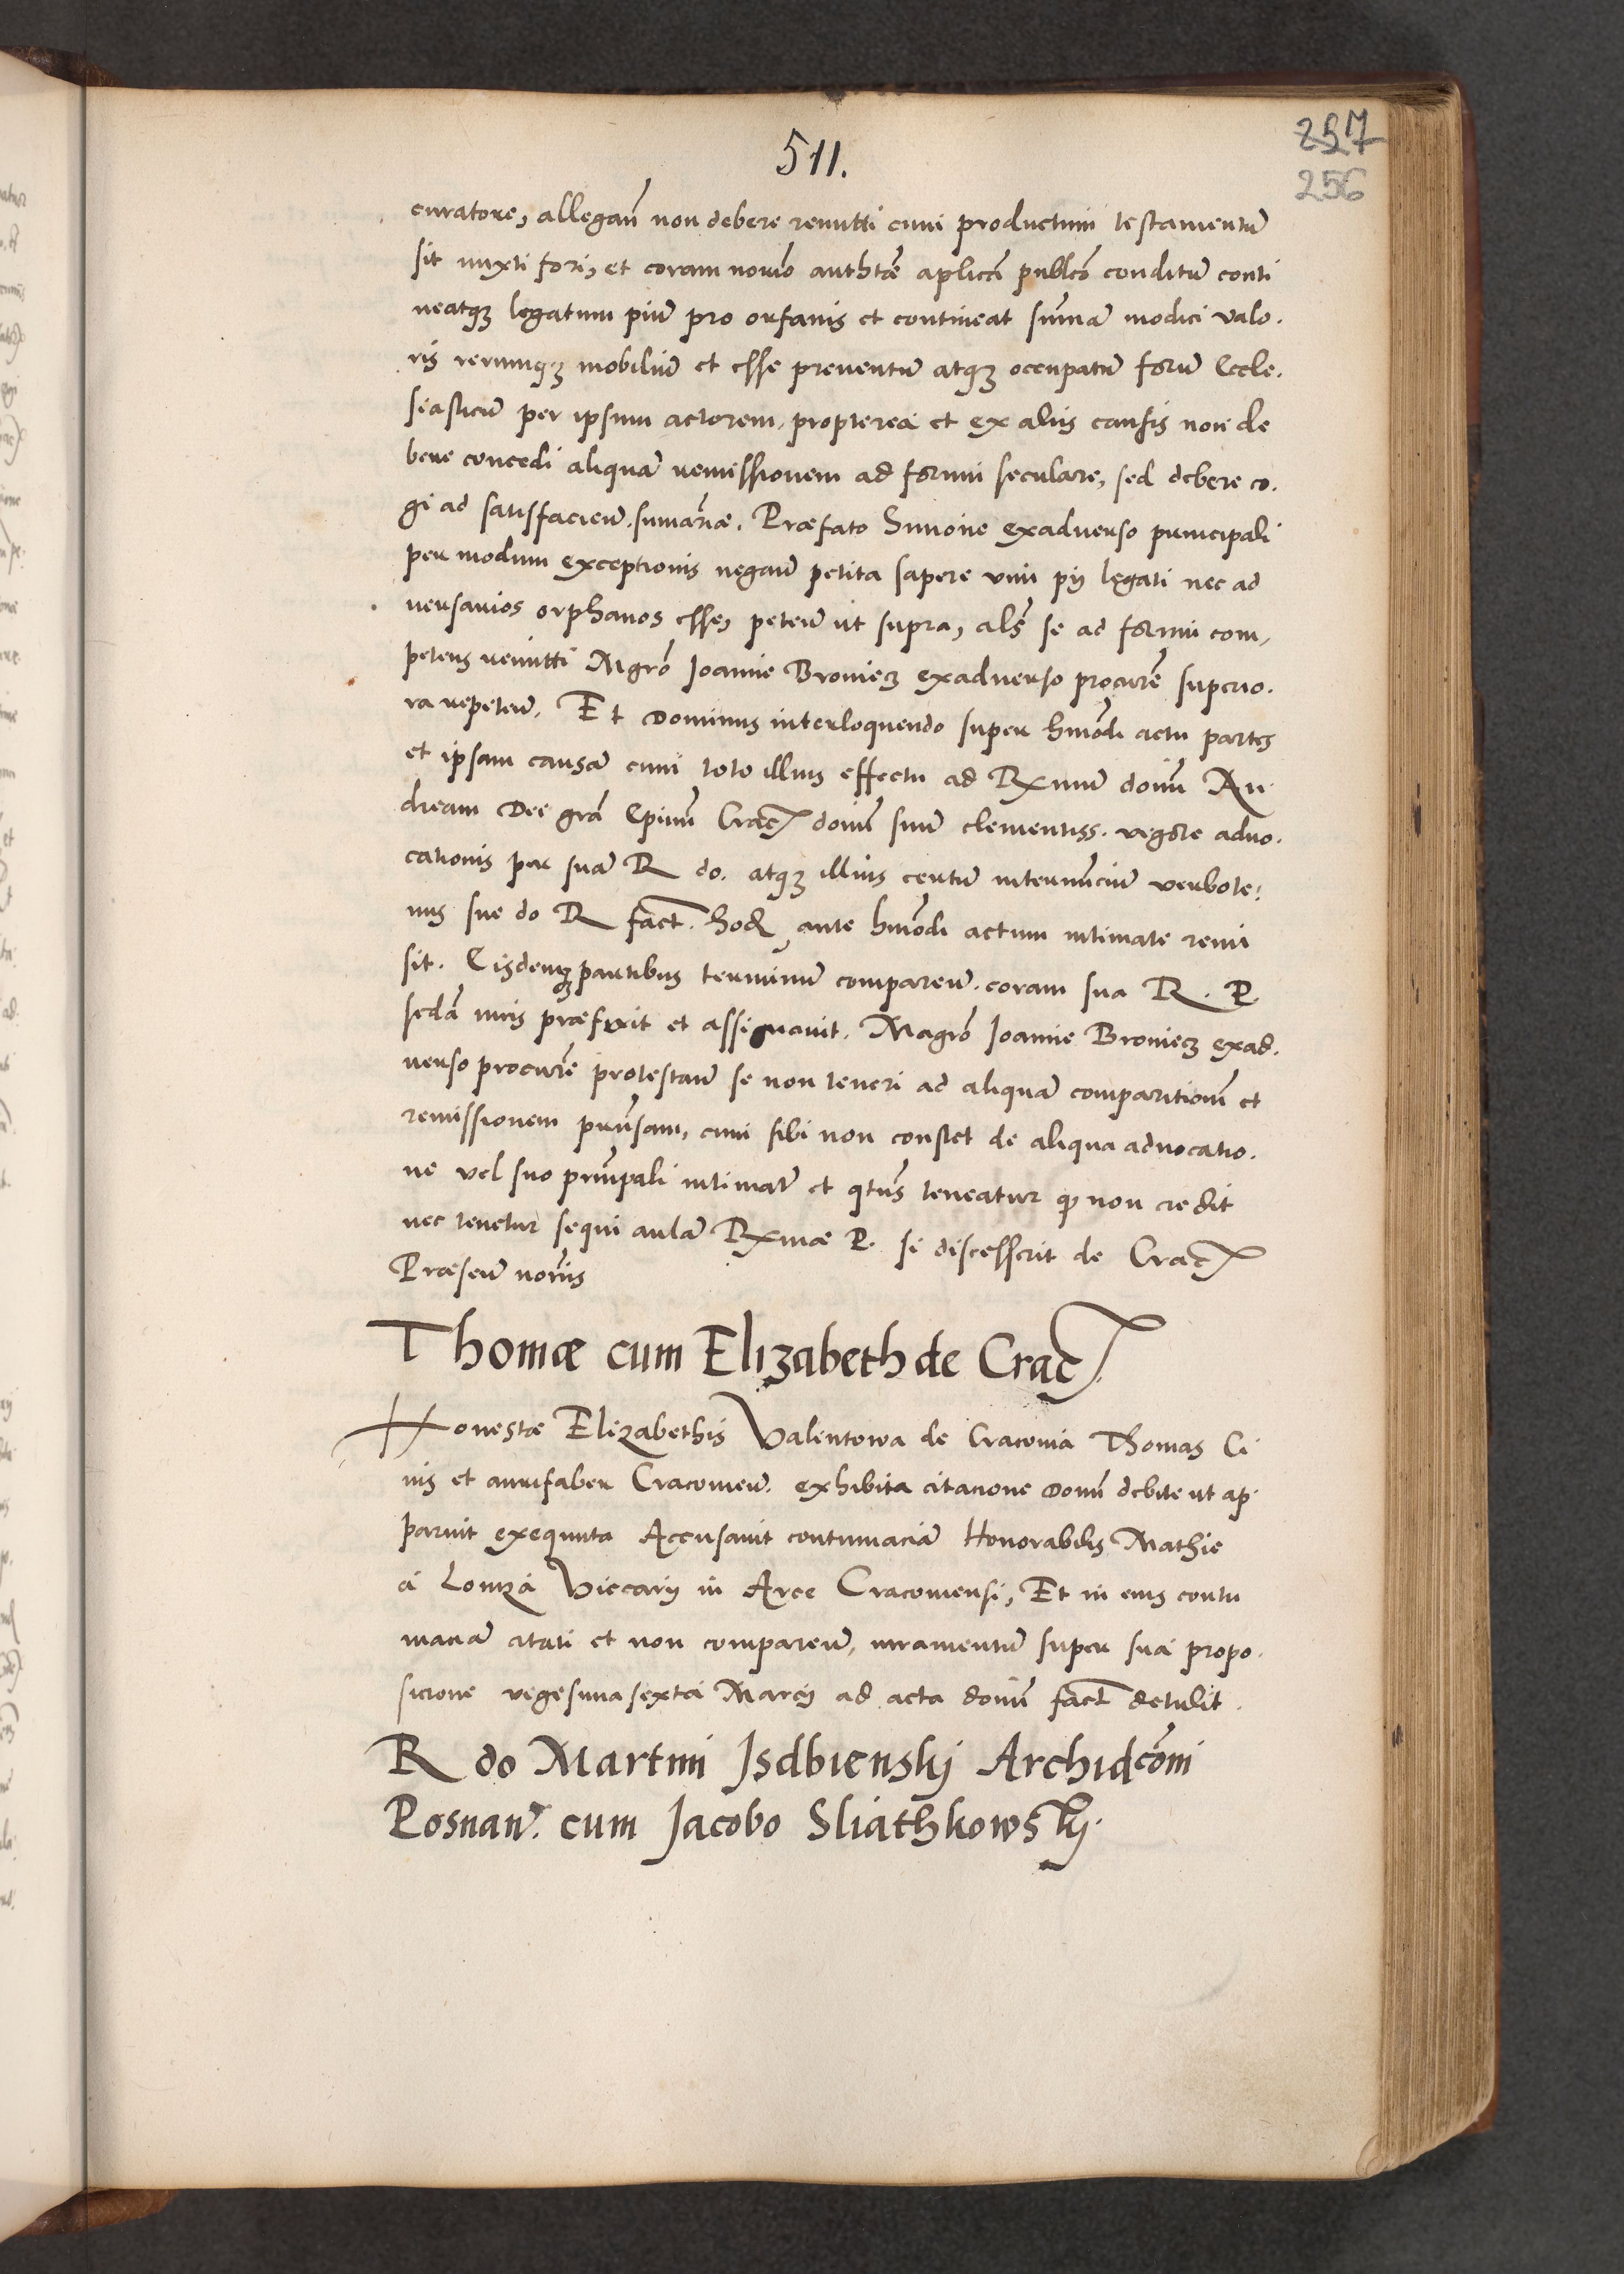 511.
257
256
curatore, allegan̄ non debere remitti cum productum testamentū
sit mixti fori, et coram norīo authtē aplicā publicō conditū conti
neatq3 legatum piū pro orfanis et contineat summā modici valo.
ris rerumq3 mobiliū et esse preuentū atq3 occupatū forū Eccle.
siasticū per ipsum actorem, propterea et ex aliis causis non de
bere concedi aliquā remissionem ad forum seculare, sed debere co.
gi ad satisfacien̄. sumariæ. Præfato Simone exaduerso principali
per modum exceptionis negan̄ petita sapere vim pij legati nec ad
uersarios orphanos esse, peten̄ ut supra, als̄ se ad forum com,
petens remitti Mgrō Joanne Broniecz exaduerso procurē superio.
ra repeten̄. Et Dominus interloquendo super hmōdi actu partes
et ipsam causā cum toto illius effectu ad Rxmum̄ dom̄ An.
dream Dei grā Epum̄ Crac̄ dom̄ suū clementiss. vigore aduo.
cationis per suā R do. atq3 illius certū internunciū verbote:
nus sue do R fact̄. hod̄ ante hmōdi actum intimate remi
sit. Eisdemq3 partibus terminū comparen̄. coram sua R. P.
sedā iuris præfixit et assignauit. Magrō Joanne Broniecz exad.
uerso procurē protestan̄ se non teneri ad aliquā comparitionē et
remissionem pmissam, cum sibi non constet de aliqua aduocatio.
ne vel suo prinpali intimat̄ et qtus̄ teneatur qd non credit
nec tenetur sequi aulā Rxmæ P. si discesserit de Crac̄
Præsen̄ noriis
Thomæ cum Elizabeth de Crac̄.
Honestæ Elizabethis Valentowa de Cracouia Thomas Ci
uis et aurifaber Cracouien̄. exhibita citacione Dom̄ debite ut ap
paruit exequuta Accusauit contumaciā Honorabilis Mathie
a Lomza Viccarij in Arce Cracouiensi, Et in eius contu
maciā citati et non comparen̄, iuramentū super sua propo.
sicione vigesima sexta Marcij ad acta dom̄ fact̄ detulit.
R do Martini Isdbienski Archidcōni
Posnan̄. cum Jacobo Sliathkowskj.